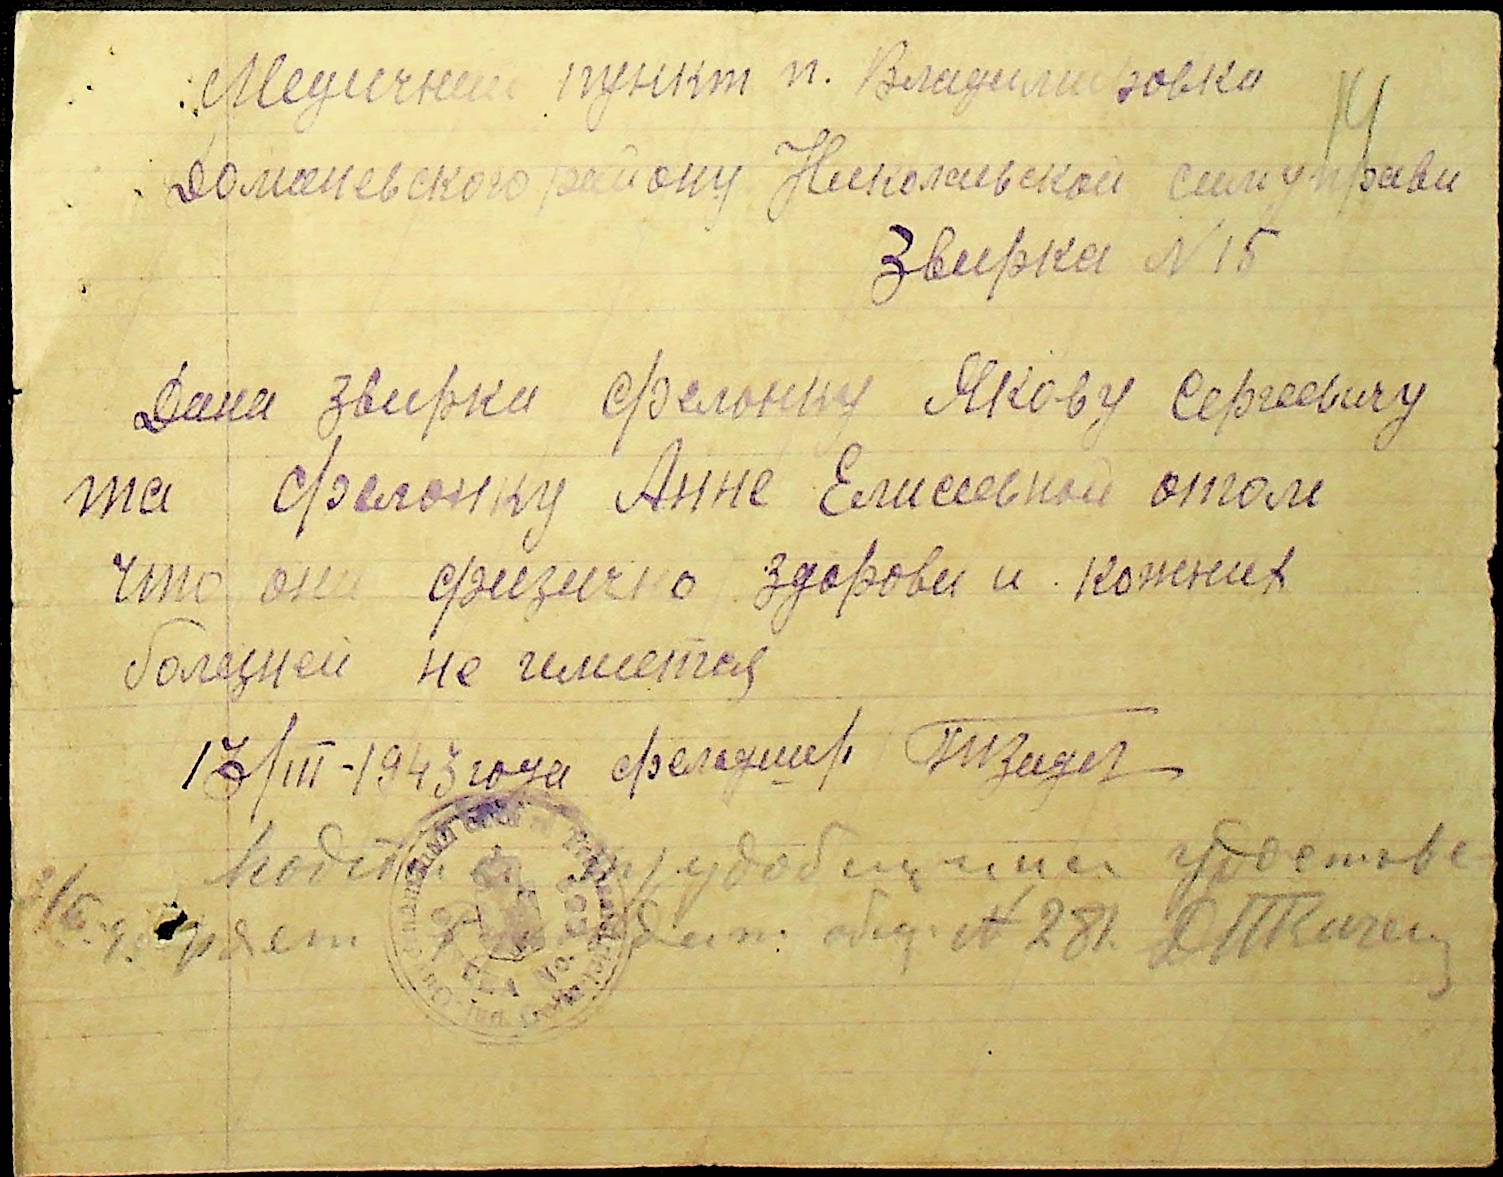 Медичний пункт п. Владимировка
Доманевского району Николаевской силуправи
Звирка N 15
Дана звирка Фелонку Якову Сергеевичу
та Фелонку Анне Елисеевной отом
что они физично здорови и кожних
болезней не имеется
13/III-1943 года фельдшер
14
удостове-
ряет
общ. N 281.